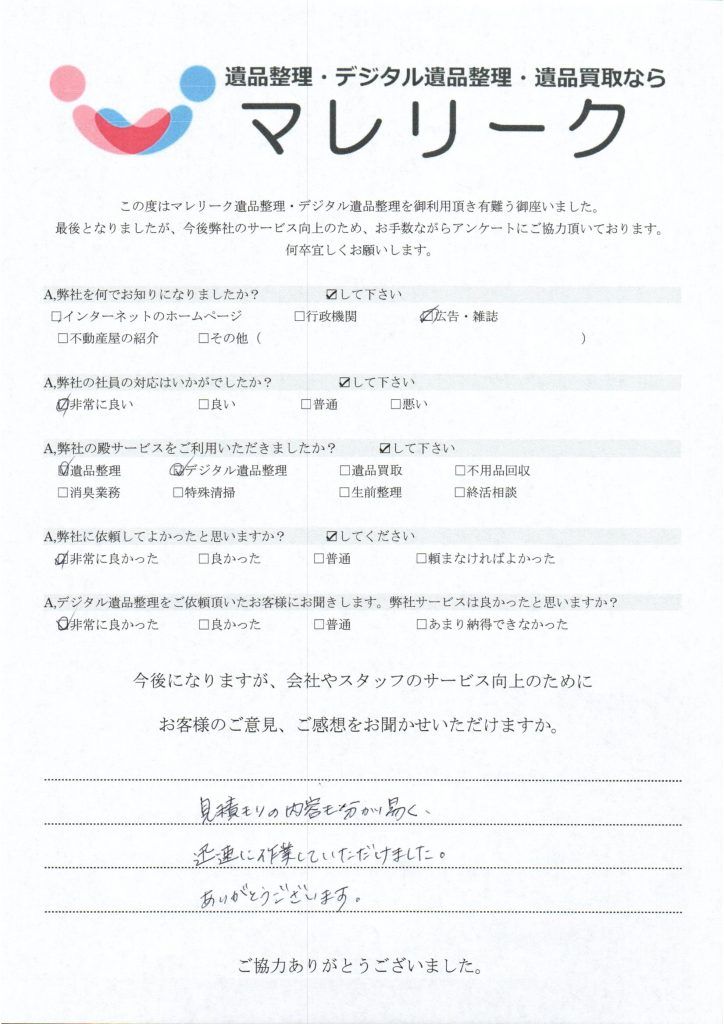 遺品整理・デジタル遺品整理・遺品買取なら
マレリーク
この度はマレリーク遺品整理・デジタル遺品整理を御利用頂き有難う御座いました。
最後となりましたが、今後弊社のサービス向上のため、お手数ながらアンケートにご協力頂いております。
何卒宜しくお願いします。
A,弊社を何でお知りになりましたか？ ☑して下さい
□インターネットのホームページ □行政機関 ☑広告・雑誌
□不動産屋の紹介 □その他（ ）
A,弊社の社員の対応はいかがでしたか？ ☑して下さい
☑非常に良い □良い □普通 □悪い
A,弊社の殿サービスをご利用いただきましたか？ ☑して下さい
☑遺品整理 ☑デジタル遺品整理 □遺品買取 □不用品回収
□消臭業務 □特殊清掃 □生前整理 □終活相談
A,弊社に依頼してよかったと思いますか？ ☑してください
☑非常に良かった □良かった □普通 □頼まなければよかった
A,デジタル遺品整理をご依頼頂いたお客様にお聞きします。弊社サービスは良かったと思いますか？
☑非常に良かった □良かった □普通 □あまり納得できなかった
今後になりますが、会社やスタッフのサービス向上のために
お客様のご意見、ご感想をお聞かせいただけますか。
見積もりの内容も分かり易く、
迅速に作業していただけました。
ありがとうございます。
ご協力ありがとうございました。